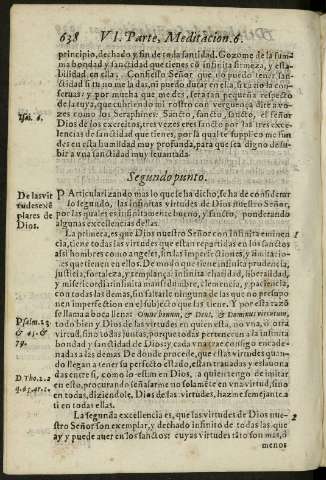 638 VI. Parte, Meditacion. 6.
principio, dechado y fin de toda santidad. Gozome de la suma
ma bondad y sanctidad que tienes cō infinita firmeza, y esta-
bilidad en ella, Confiesso Señor que no puedo tener san-
ctidad si tu no me la das, ni puedo durar en ella, si tu no la con-
seruas: y por mucha que me des, sera tan pequeña respecto
de la tuya, que cubriendo mi rostro con verguença dire a vo-
Isai. 6.
zes como los Seraphines. Sancto, sancto, sancto, es el señor
Dios de los exercitos, tres vezes eres sancto por las tres exce-
lencias de sanctidad que tienes, por la qual te supplico me fun-
des en esta humildad muy profunda, para que sea digno de su-
bir a vna sanctidad muy leuantada.
Segundo punto.
De las vir
tudes exē
plares de
Dios.
PArticularizando mas lo que se ha dicho, se ha de considerar
lo segundo, las infinitas virtudes de Dios nuestro Señor,
por las quales es infinitamente bueno, y sancto, ponderando
algunas excellencias dellas.
1
La primera, es que Dios nuestro Señor con infinita eminen
cia, tiene todas las virtudes que estan repartidas en los sanctos
assi hombres como angeles, sin las imperfectiones, y limitacio-
nes que tienen en ellos. De modo que tiene infinita prudencia,
justicia, fortaleza, y templança: infinita charidad, liberalidad,
y misericordia: infinita mansedumbre, clemencia, y paciencia,
con todas las demas, sin faltarle ninguna de las que no presupo
nen imperfection en el subjecto que las tiene. Y por esta razō
Psalm. 23.
& 45. &
79.
se llama a boca llena: Omne bonum, & Deus, & Dominus virtutum,
todo bien y Dios de las virtudes en quien esta, no vna, ni otra
virtud, sino todas juntas, porque todas pertenecen a la infinita
bondad y sanctidad de Dios; y cada vna trae consigo encade-
nadas a las demas. De donde procede, que estas virtudes quan-
D. Tho. 1. 2
do llegan a tener su perfecto estado, estan trauadas y eslauona
das entre si, como lo estan en Dios, a quien tengo de imitar
en esto, procurando señalarme no solamēte en vna virtud, sino
en todas, diziendole, Dios de las virtudes, hazme semejante a
ti en todas ellas.
2
La segunda excellencia es, que las virtudes de Dios nue-
stro Señor son exemplar, y dechado infinito de todas las que
ay y puede auer en los sanctos: cuyas virtudes tāto son mas, ó
menos